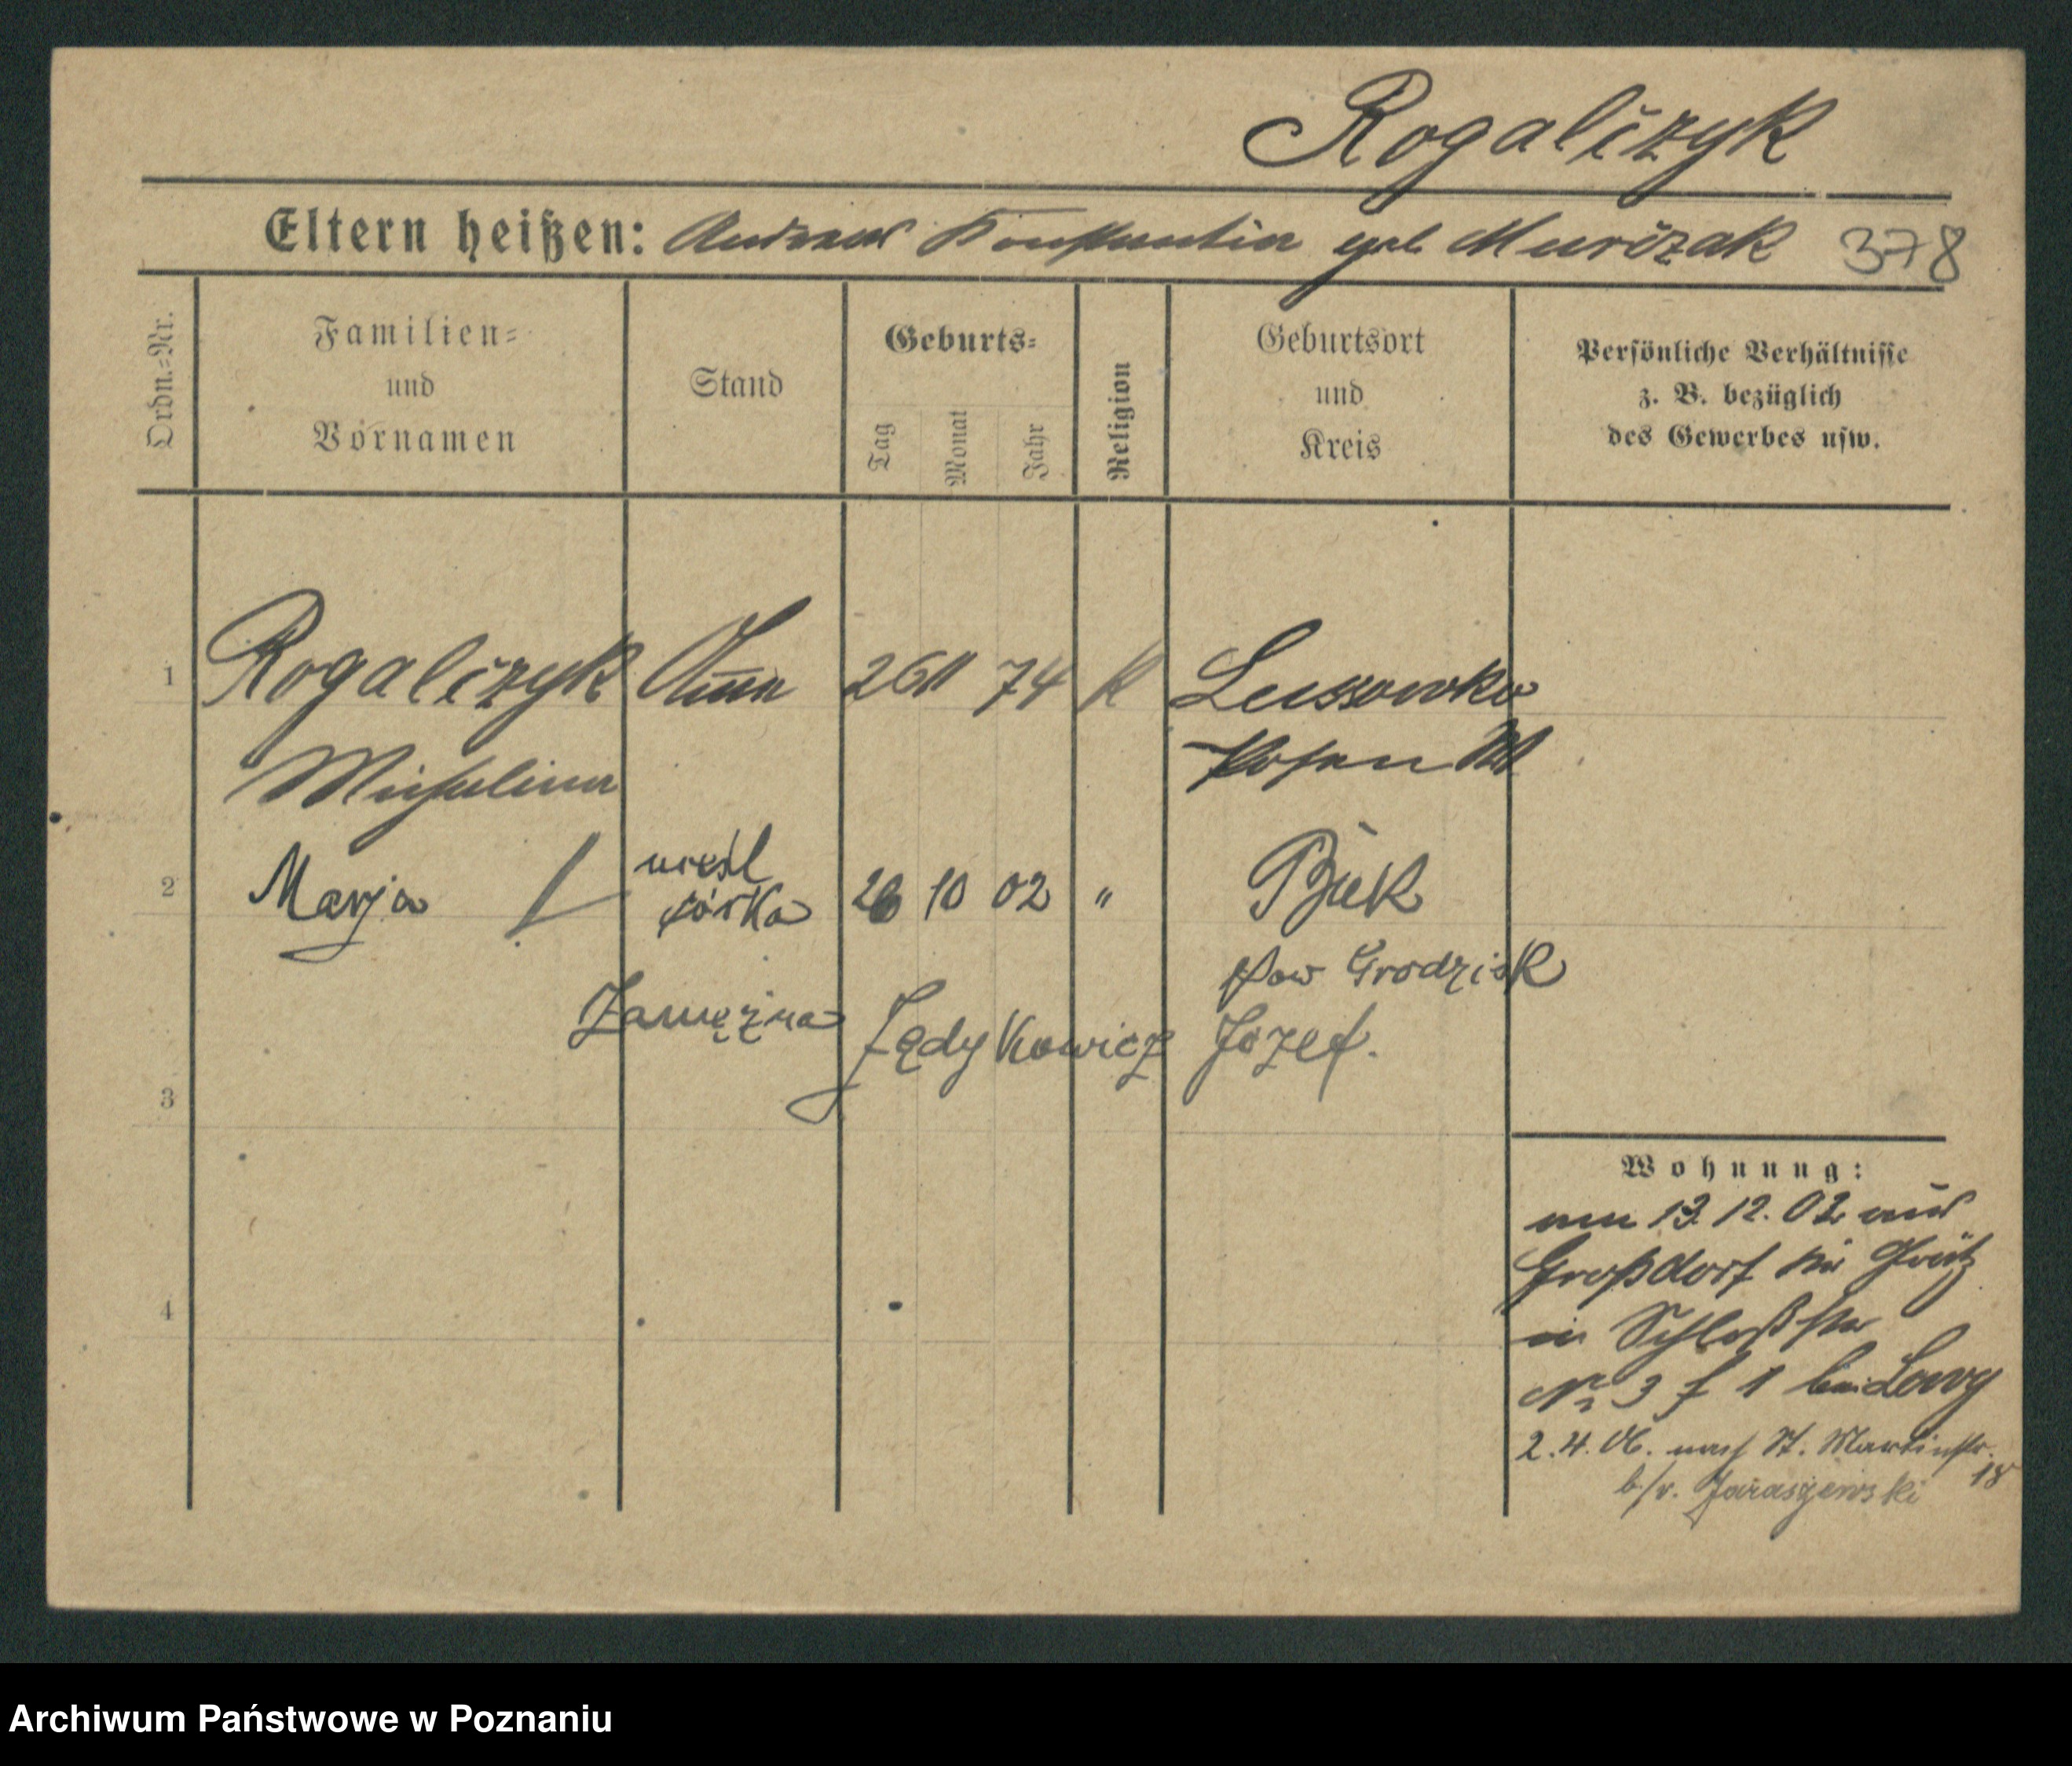 Rogalčzyk
Eltern heißen: Andreas Konstantia geb Murčzak 378
Ordn.=Nr.
Familien=
und
Vornamen
Stand
Geburts=
Tag
Monat
Jahr
Religion
Geburtsort
und
Kreis
Persönliche Verhältnisse
z. B. bezüglich
des Gewerbes usw.
1 Rogalčzyk Amm 26 11 74 K Lussowko
Michalina Posen W
2 Marja nieśl córka 26 10 02 " Buk
pow Grodzisk
Zamężna Jędykowicz Jozef.
3
4
Wohnung:
am 13. 12. 02 aus
Großdorf Kr Grätz
in Schloßstr
No 3 f 1 bei
2. 4. 06. nach St. Martinstr.
18
b/v.
Archiwum Państwowe w Poznaniu